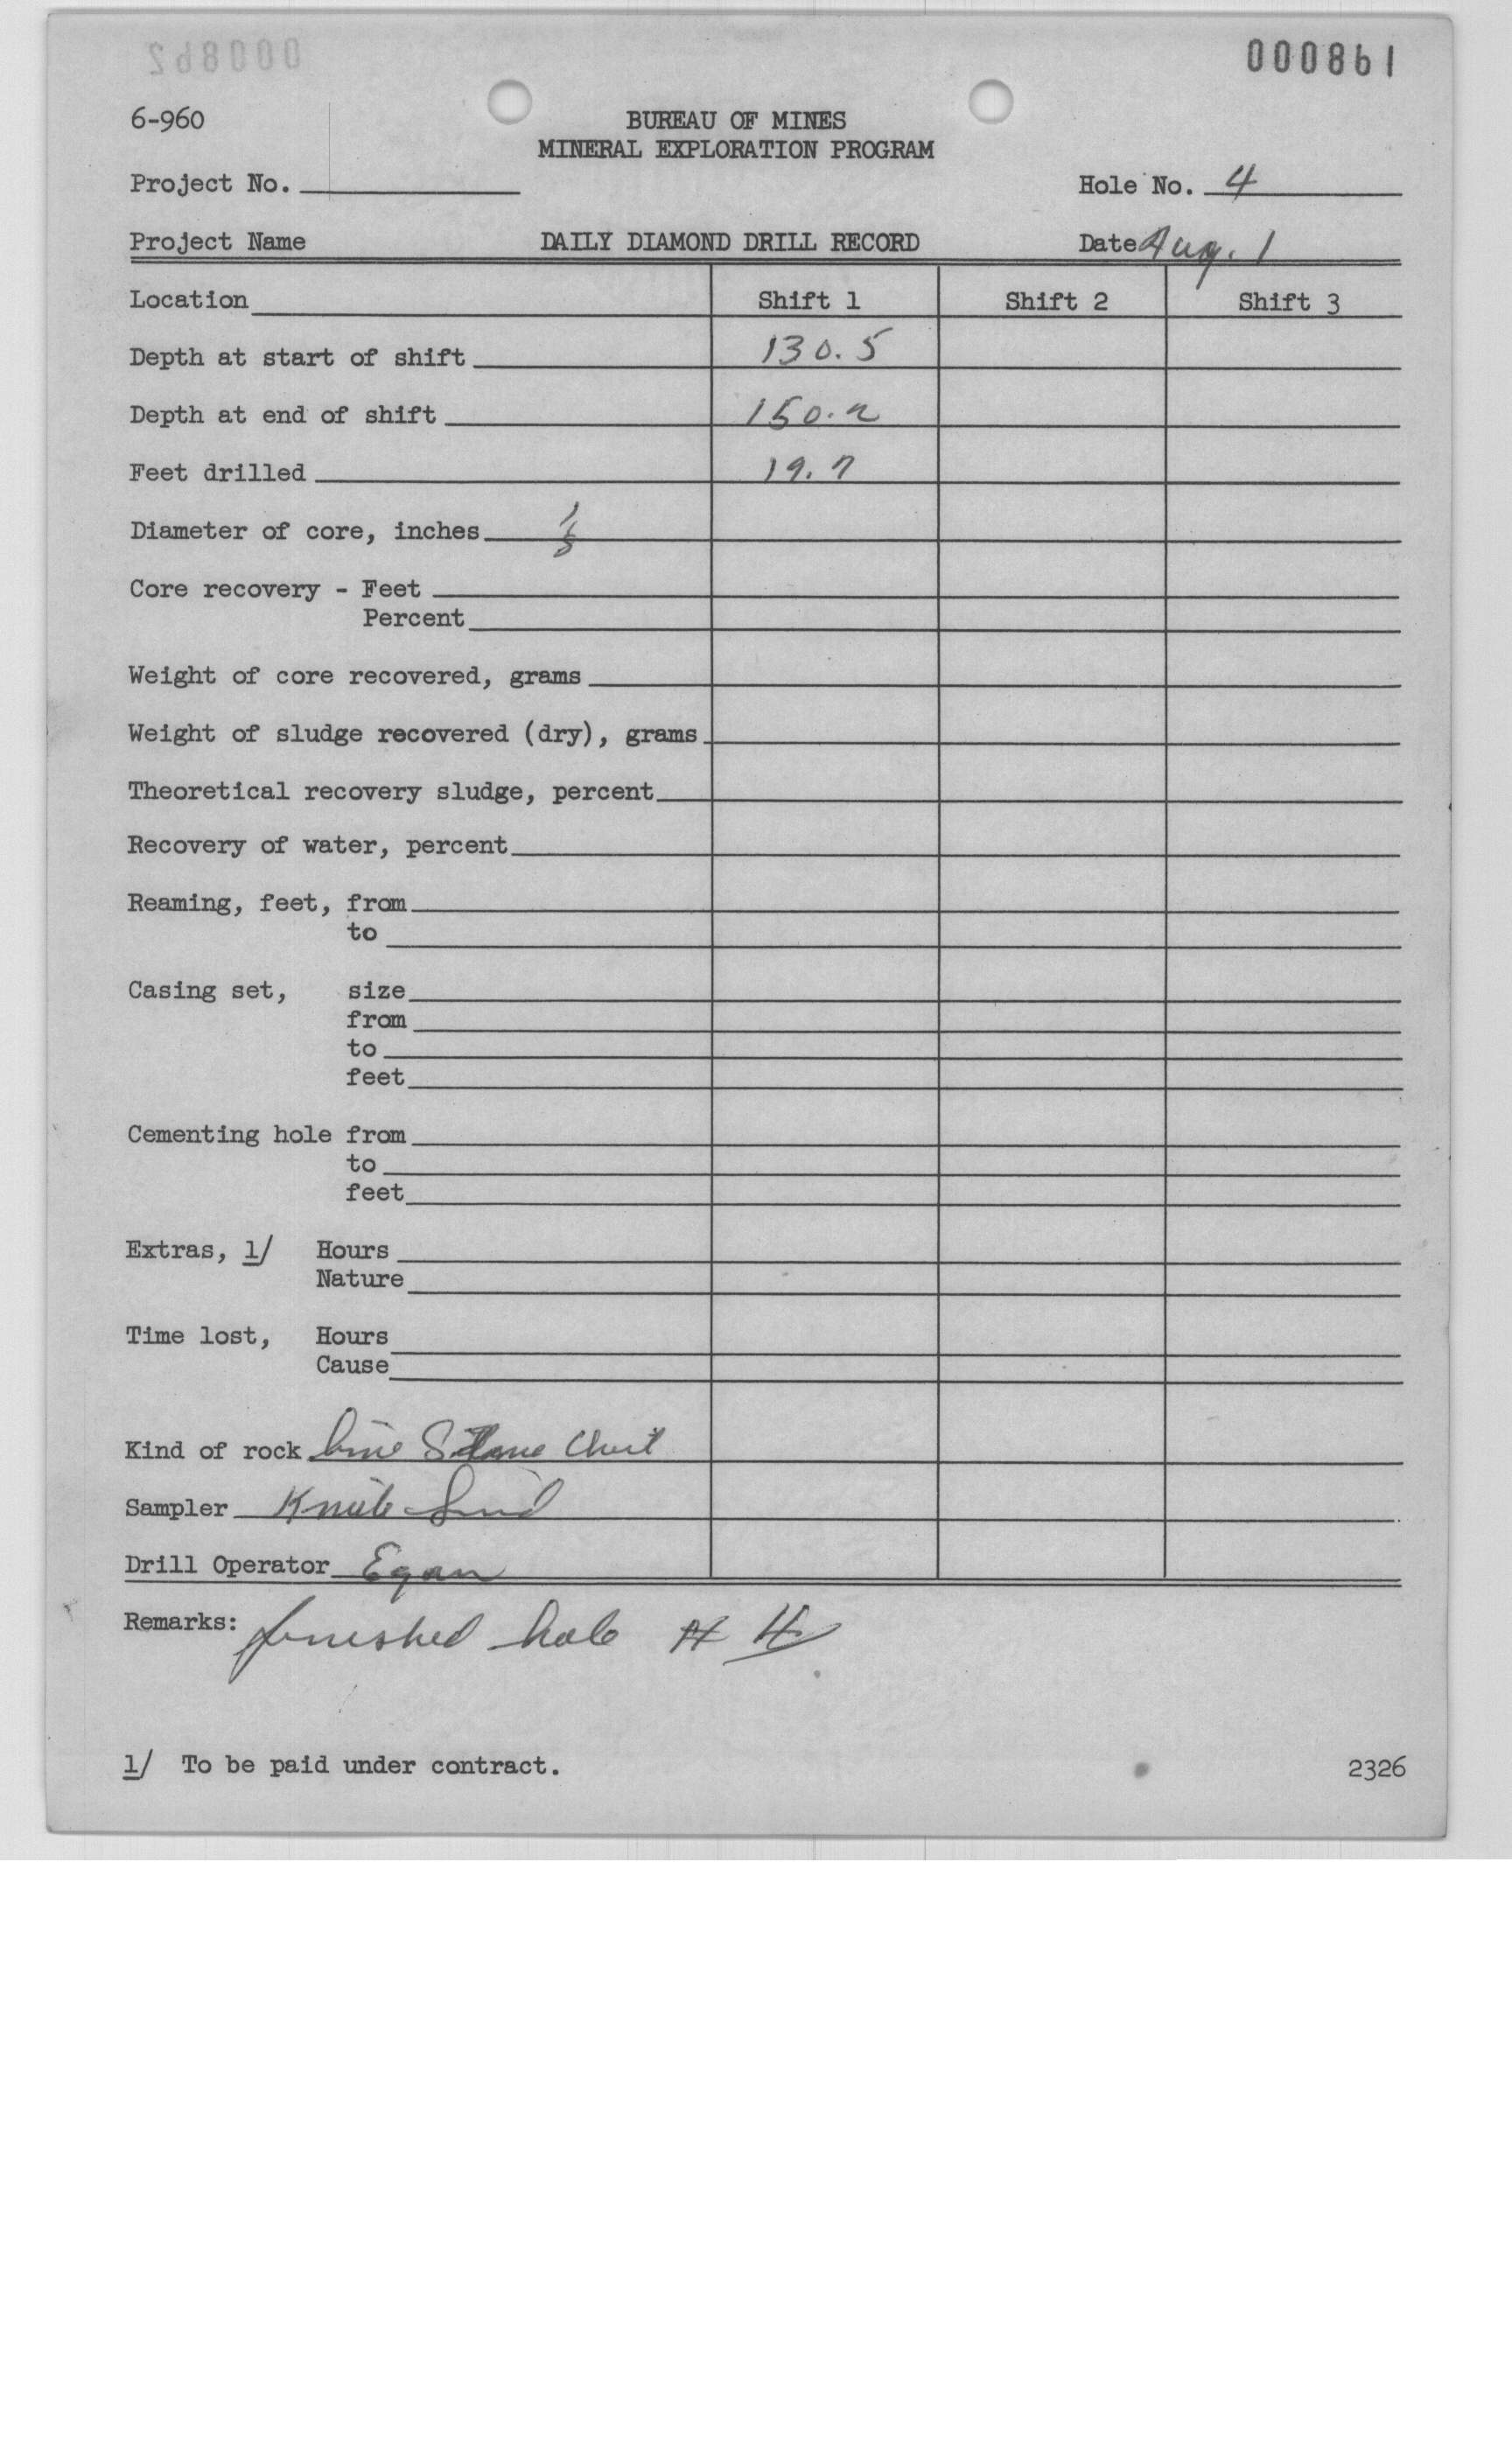 000861
6-960
BUREAU OF MINES
MINERAL EXPLORATION PROGRAM
Project No.
Hole No. 4
Project Name DAILY DIAMOND DRILL RECORD Date Aug. 1
Location Shift 1 Shift 2 Shift 3
Depth at start of shift 130.5
Depth at end of shift 150.2
Feet drilled 19.7
Diameter of core, inches
Core recovery - Feet
Percent
Weight of core recovered, grams
Weight of sludge recovered (dry), grams
Theoretical recovery sludge, percent
Recovery of water, percent
Reaming, feet, from
to
Casing set, size
from
to
feet
Cementing hole from
to
feet
Extras, 1/ Hours
Nature
Time lost, Hours
Cause
Kind of rock Lime Stone Chert
Sampler
Drill Operator Egan
Remarks: finished hole # 4
1/ To be paid under contract.
2326